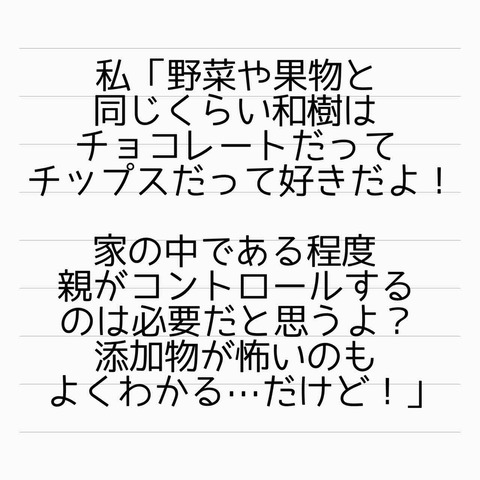 私「野菜や果物と
同じくらい和樹は
チョコレートだって
チップスだって好きだよ！
家の中である程度
親がコントロールする
のは必要だと思うよ？
添加物が怖いのも
よくわかる…だけど！」